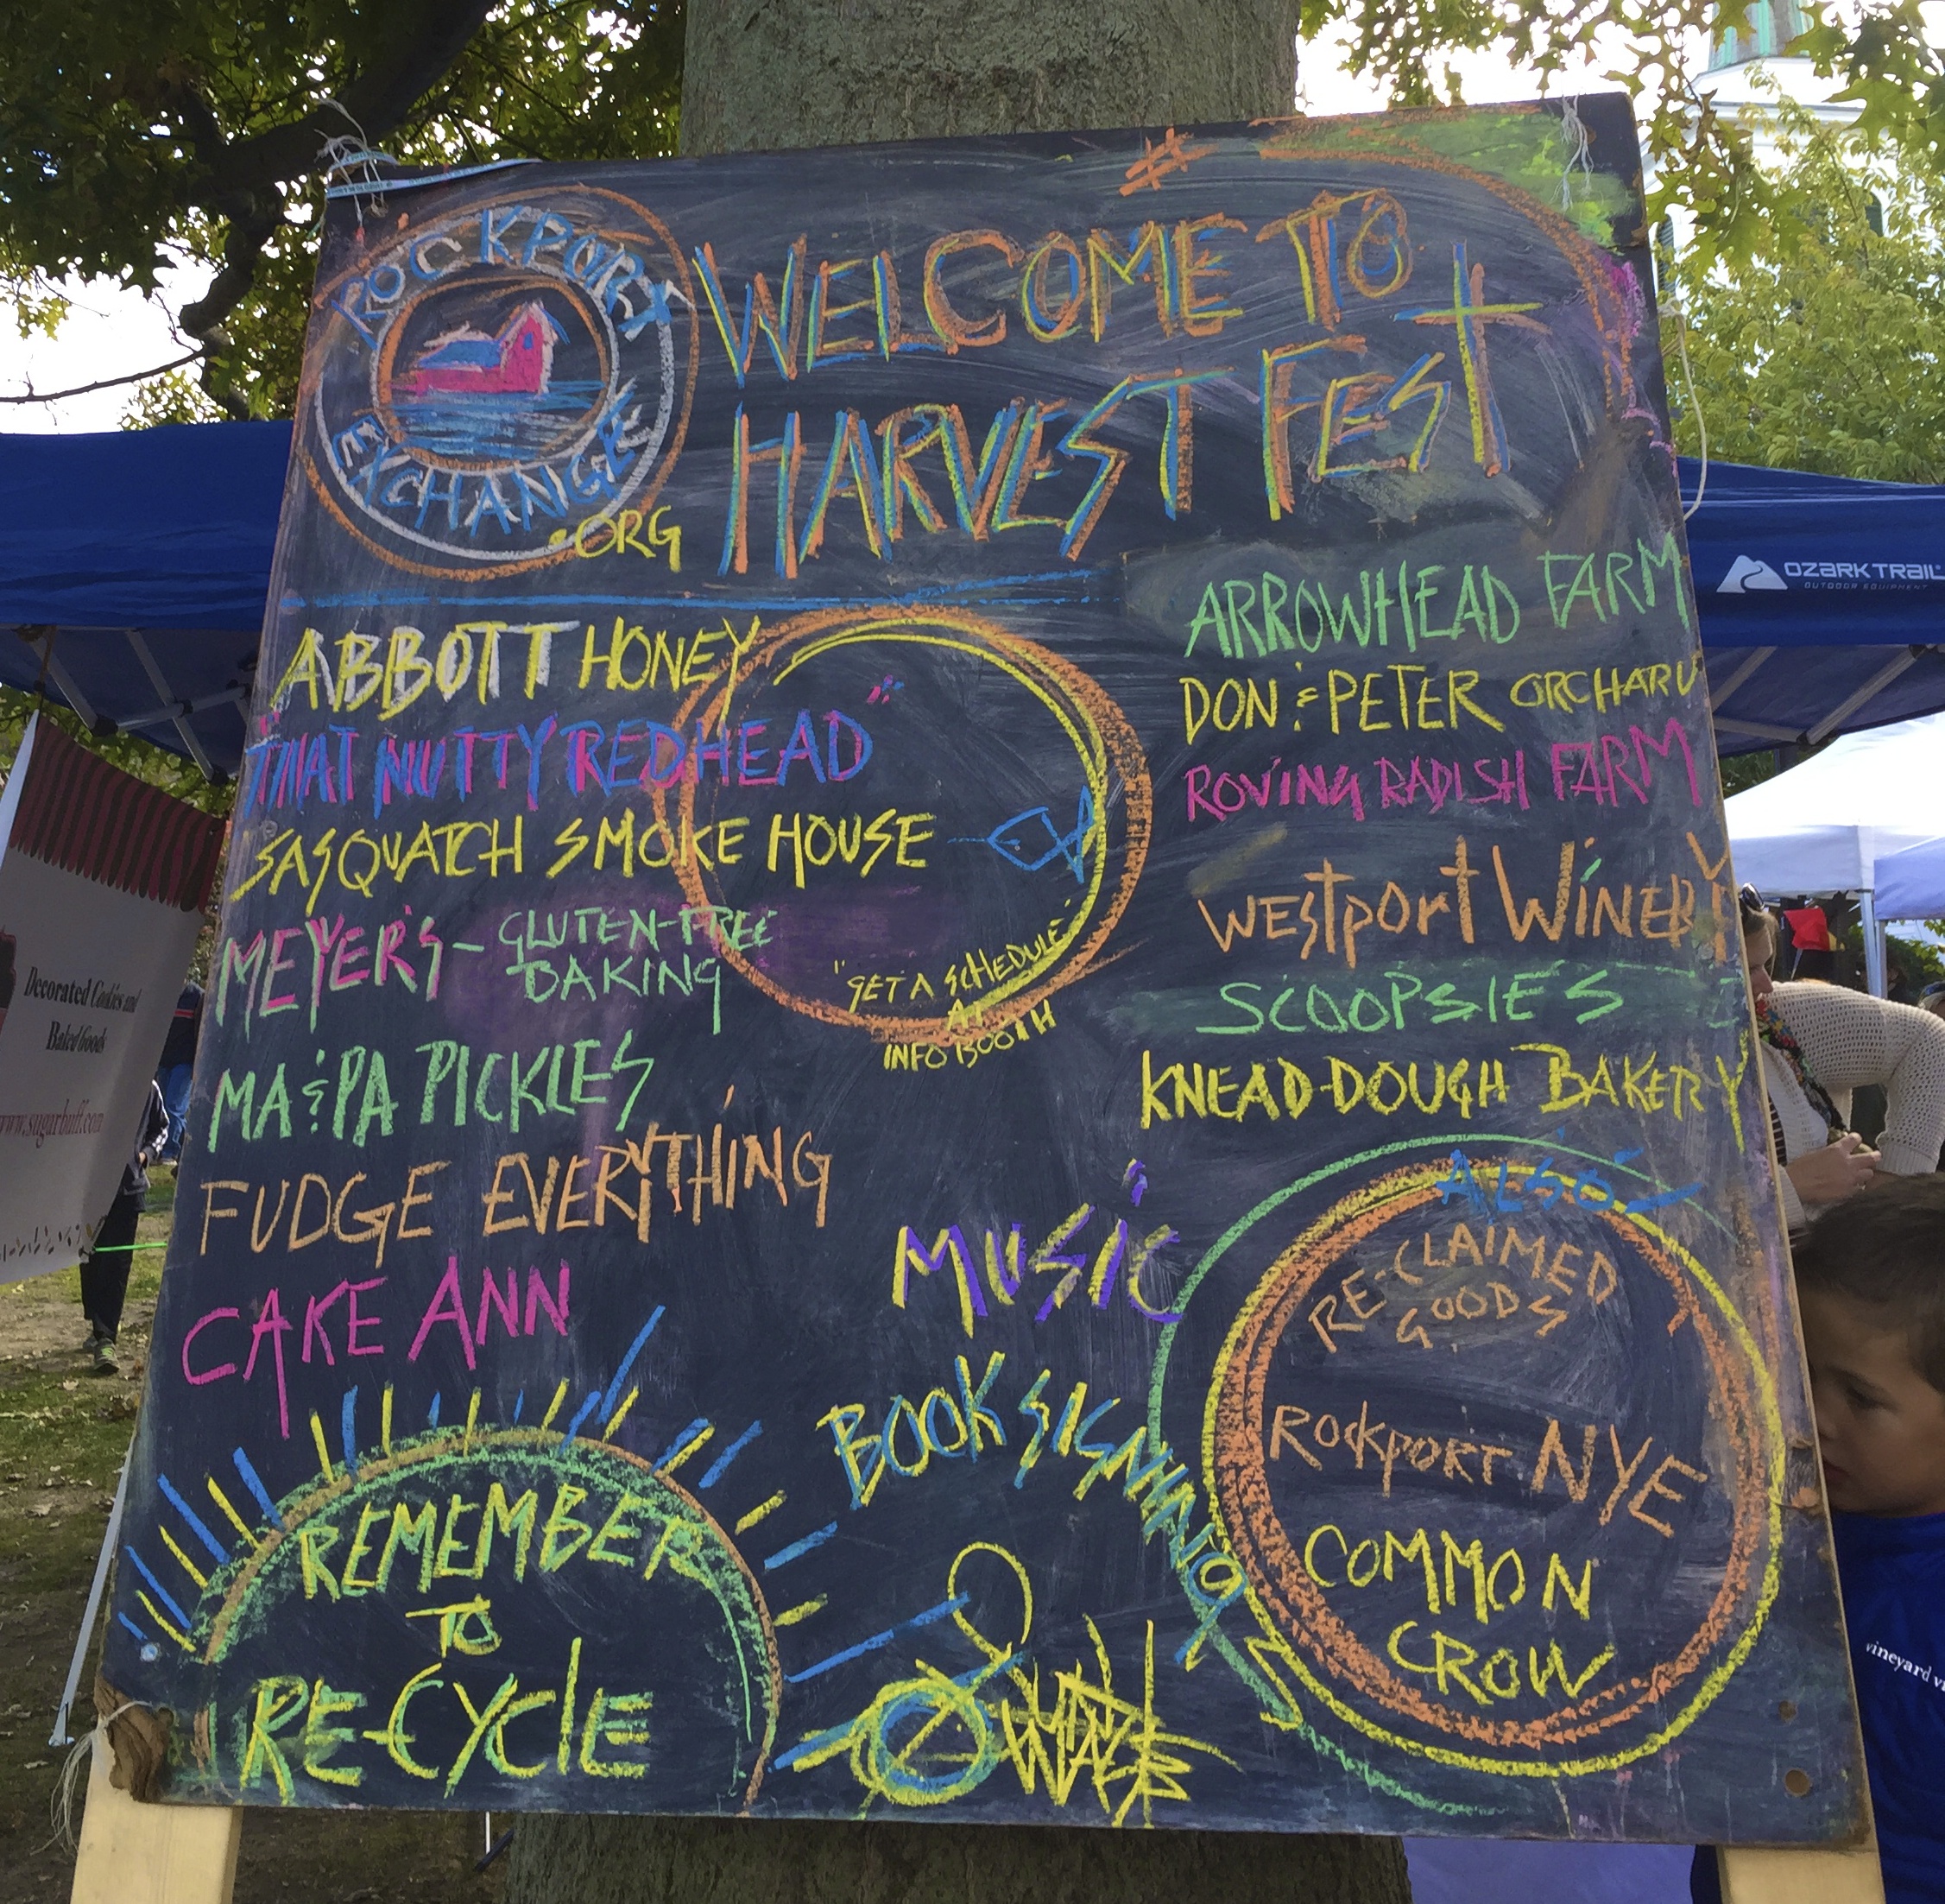 #
ROCKPORT
EXCHANGE
.ORG
WELCOME TO
HARVEST FEST
ABBOTT HONEY
"THAT NUTTY REDHEAD"
SASQUATCH SMOKE HOUSE
MEYER'S - GLUTEN-FREE
BAKING
MA & PA PICKLES
FUDGE EVERYTHING
CAKE ANN
"GET A SCHEDULE"
AT
INFO BOOTH
ARROWHEAD FARM
DON & PETER ORCHARD
ROVING RADISH FARM
WESTPORT WINERY
SCOOPSIES
KNEAD-DOUGH BAKERY
MUSIC
BOOK SIGNING
ALSO
RE-CLAIMED
GOODS
ROCKPORT NYE
COMMON
CROW
REMEMBER
TO
RE-CYCLE
OZARK TRAIL
OUTDOOR EQUIPMENT
Decorated Cookies and
Baked Goods
www.sugarbuff.com
vineyard